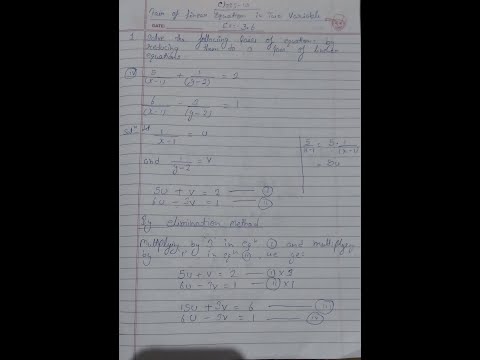 Class-10
Pair of Linear Equation in Two Variable
Ex: 3.6
1 Solve the following pairs of equations by
reducing them to a pair of linear
equations
5/(x-1) + 1/(y-2) = 2
6/(x-1) - 3/(y-2) = 1
Solⁿ let 1/x-1 = u
5/x-1 = 5·1/(x-1)
= 5u
and 1/y-2 = v
5u + v = 2 — (i)
6u - 3v = 1 — (ii)
By elimination method
Multiplying by 3 in eqⁿ (i) and multiply
by 1 in eqⁿ (ii), we get
5u + v = 2 — (i) x 3
6u - 3v = 1 — (ii) x 1
15u + 3v = 6 — (iii)
6u - 3v = 1 — (iv)